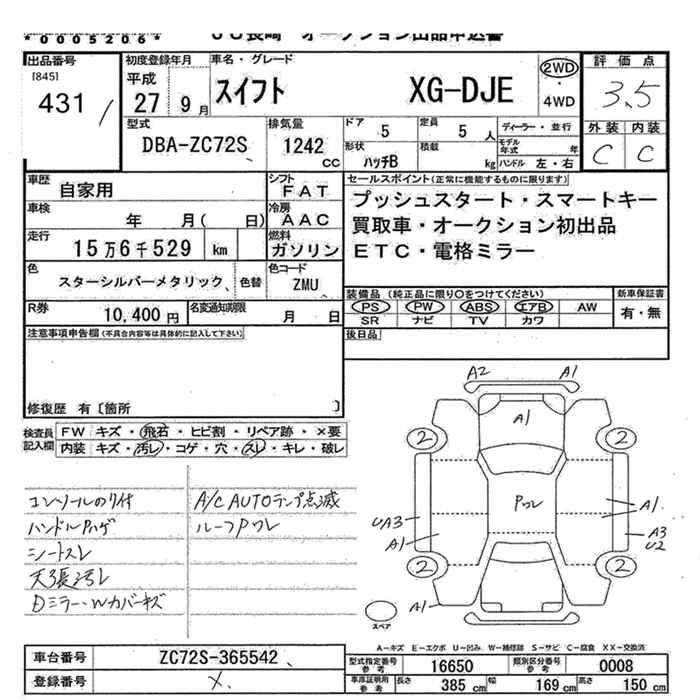 * 0005206 *
オークション出品申込書
出品番号 [845] 431
初度登録年月 平成 27年 9月
車名・グレード スイフト XG-DJE
2WD ・ 4WD
評価点 3.5
外装 内装
C C
型式 DBA-ZC72S
排気量 1242 cc
ドア 5
定員 5人
ディーラー・並行
形状 ハッチB
積載 kg
モデル年式 年
ハンドル 左・右
車歴 自家用
シフト FAT
車検 年 月( 日)
冷房 AAC
走行 15万6千529 km
燃料 ガソリン
色 スターシルバーメタリック
色替
色コード ZMU
R券 10,400円
名変通知期限 月 日
セールスポイント(正常に機能するものに限ります)
プッシュスタート・スマートキー
買取車・オークション初出品
ETC・電格ミラー
装備品 (純正品に限り○をつけてください)
新車保証書
PS PW ABS エアB AW
有・無
SR ナビ TV カワ
後日品
注意事項申告欄(不具合内容等は具体的に記入して下さい)
修復歴 有〔箇所 〕
検査員記入欄
FW キズ・飛石・ヒビ割・リペア跡・×要
内装 キズ・汚レ・コゲ・穴・スレ・キレ・破レ
コンソールのり付
A/C AUTOランプ点滅
ハンドルPハゲ
ルーフPワレ
シートスレ
天張汚レ
Dミラー・Wカバーキズ
A2 A1
A1
2 2
Pワレ
A1
UA3
A1
A3
U2
2 2
A1
スペア
A-キズ E-エクボ U-凹み W-補修跡 S-サビ C-腐食 XX-交換済
車台番号 ZC72S-365542
型式指定番号 参考 16650
類別区分番号 参考 0008
登録番号 X
車庫証明用 参考 長さ 385cm 幅 169cm 高さ 150cm